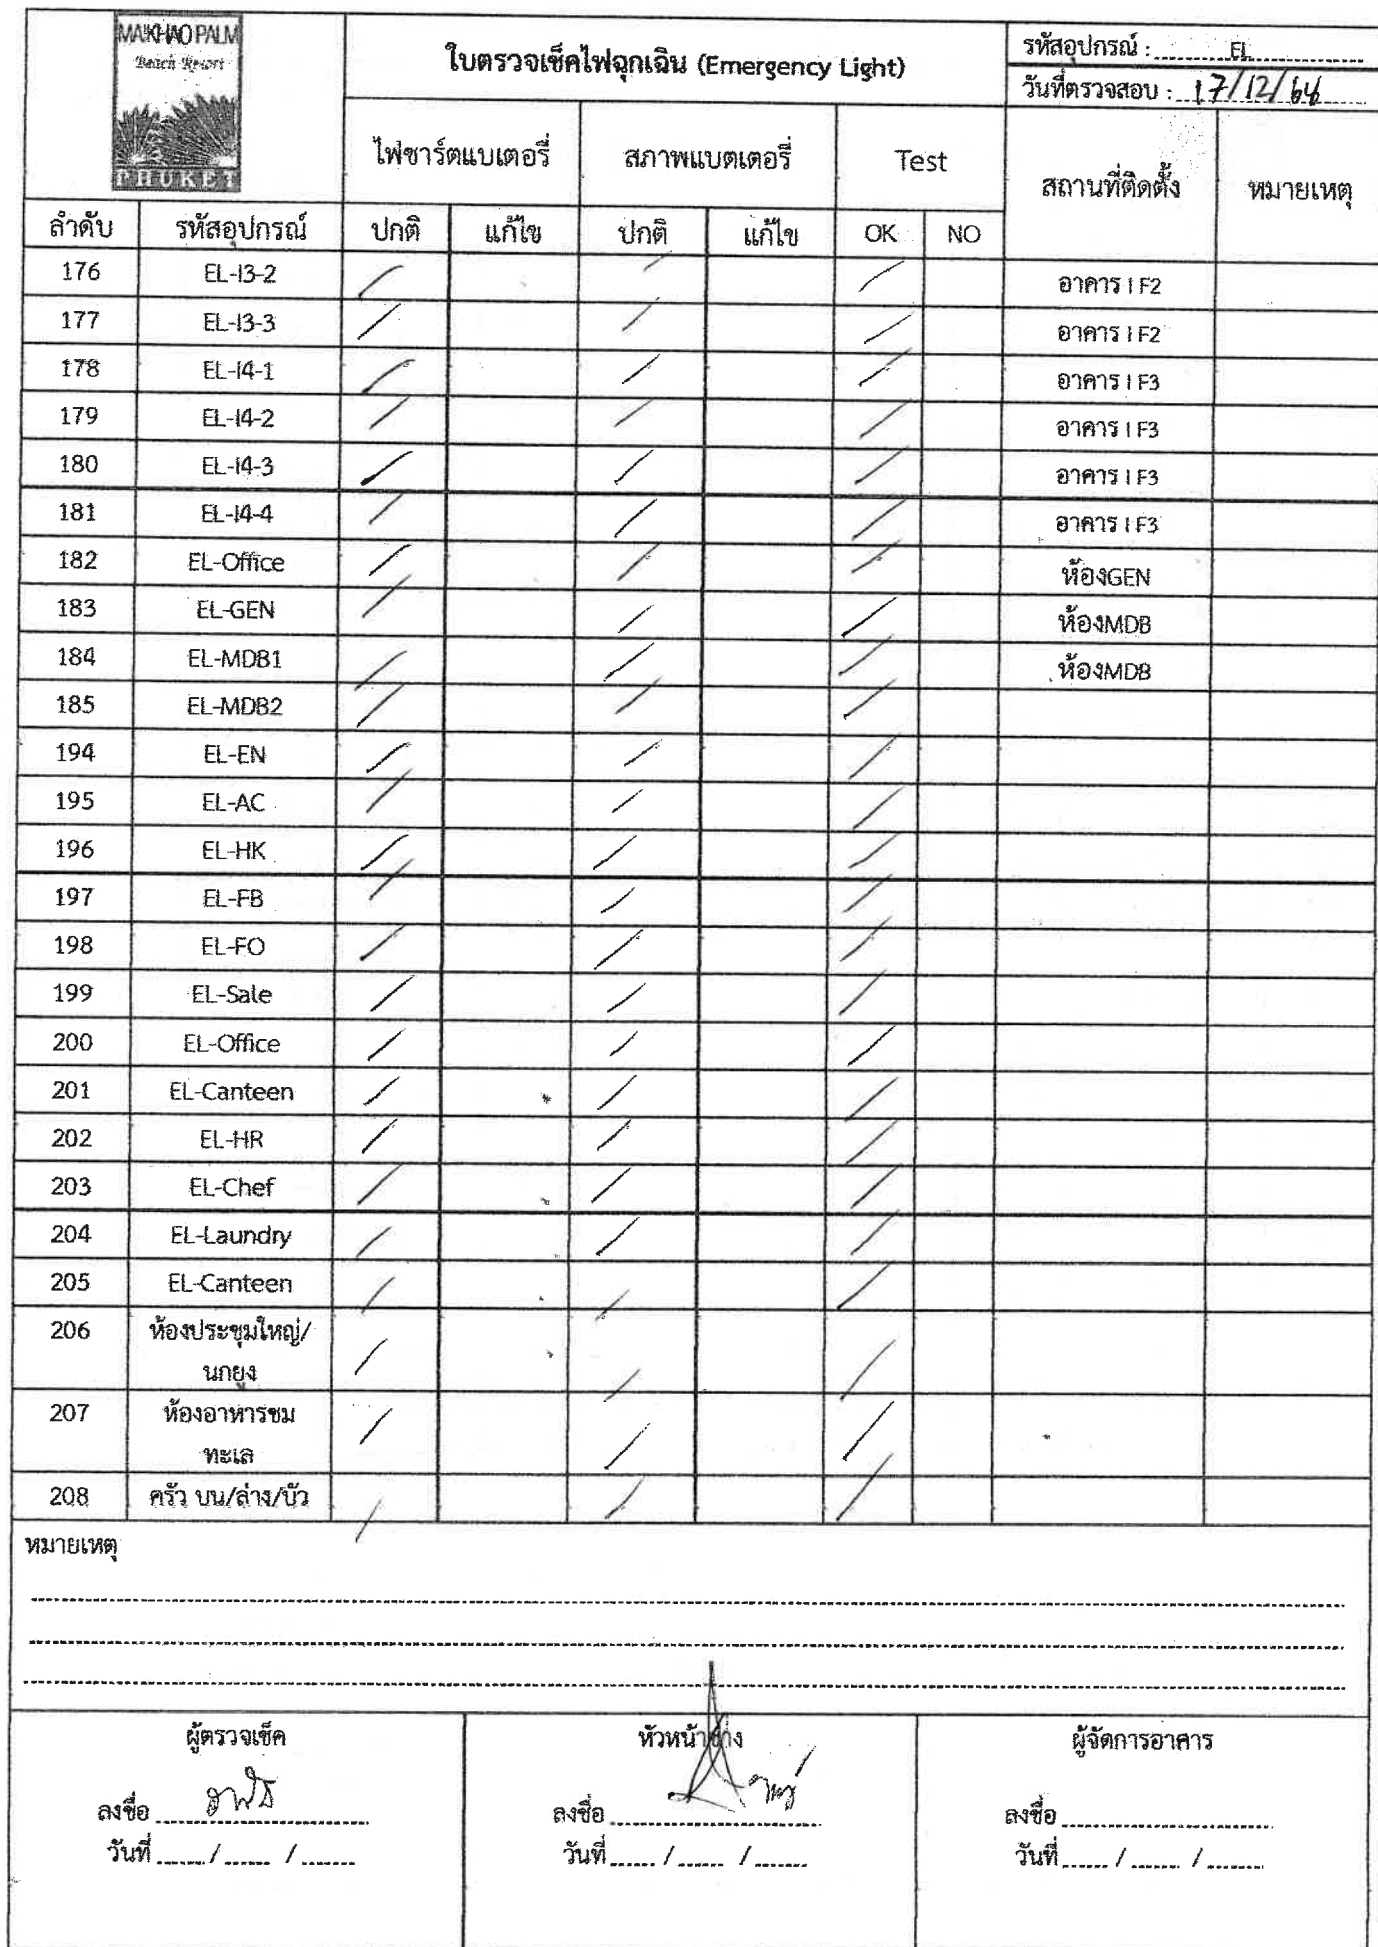 MAIKHAO PALM
Beach Resort
PHUKET
ใบตรวจเช็คไฟฉุกเฉิน (Emergency Light)
รหัสอุปกรณ์ : EL
วันที่ตรวจสอบ : 17/12/64
ไฟชาร์ตแบเตอรี่ สภาพแบตเตอรี่ Test สถานที่ติดตั้ง หมายเหตุ
ลำดับ รหัสอุปกรณ์ ปกติ แก้ไข ปกติ แก้ไข OK NO
176 EL-I3-2 / / / อาคาร I F2
177 EL-I3-3 / / / อาคาร I F2
178 EL-I4-1 / / / อาคาร I F3
179 EL-I4-2 / / / อาคาร I F3
180 EL-I4-3 / / / อาคาร I F3
181 EL-I4-4 / / / อาคาร I F3
182 EL-Office / / / ห้องGEN
183 EL-GEN / / / ห้องMDB
184 EL-MDB1 / / / ห้องMDB
185 EL-MDB2 / / /
194 EL-EN / / /
195 EL-AC / / /
196 EL-HK / / /
197 EL-FB / / /
198 EL-FO / / /
199 EL-Sale / / /
200 EL-Office / / /
201 EL-Canteen / / /
202 EL-HR / / /
203 EL-Chef / / /
204 EL-Laundry / / /
205 EL-Canteen / / /
206 ห้องประชุมใหญ่/
นกยูง / / /
207 ห้องอาหารชม
ทะเล / / /
208 ครัว บน/ล่าง/บัว / / /
หมายเหตุ
ผู้ตรวจเช็ค หัวหน้าช่าง ผู้จัดการอาคาร
ลงชื่อ ลงชื่อ ลงชื่อ
วันที่ / / วันที่ / / วันที่ / /